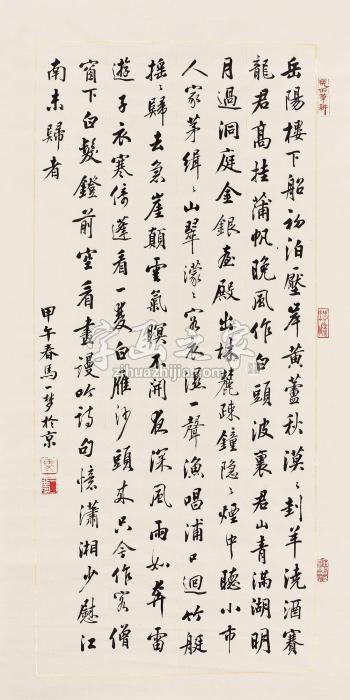 岳陽樓下船初泊壓岸黃蘆秋漠〻刲羊澆酒賽
龍君高挂蒲帆晚風作白頭波裏君山青滿湖明
月過洞庭金銀臺殿出林麓疎鐘隱〻煙中聽小市
人家茅緝〻山翠濛〻客衣濕一聲漁唱浦口迴竹艇
搖〻歸去急崖顛雲氣暝不開夜深風雨如奔雷
遊子衣寒倚蓬看一雙白雁沙頭來只今作客僧
窗下白髮鐙前空看畫謾吟詩句憶瀟湘少慰江
南未歸者
甲午春馬一夢於京
字画之家
zihuazhijia.com